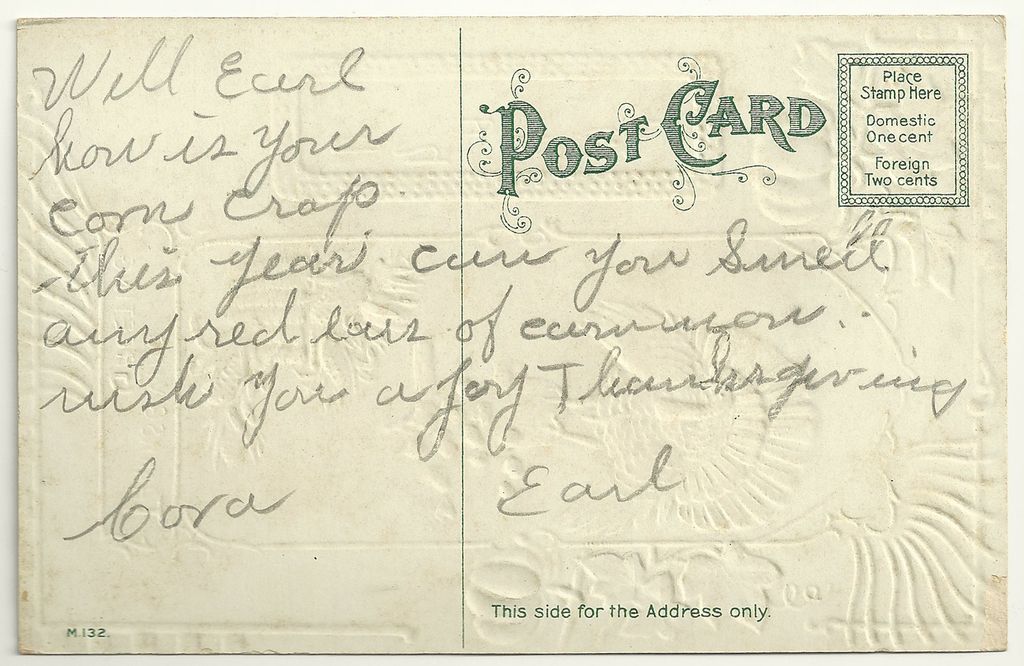 Well Earl
how is your
corn crop
this year can you Smell
any red ears of
wish you a joy Thanksgiving
Cora
Earl
POST CARD
Place
Stamp Here
Domestic
One cent
Foreign
Two cents
This side for the Address only.
M.132.